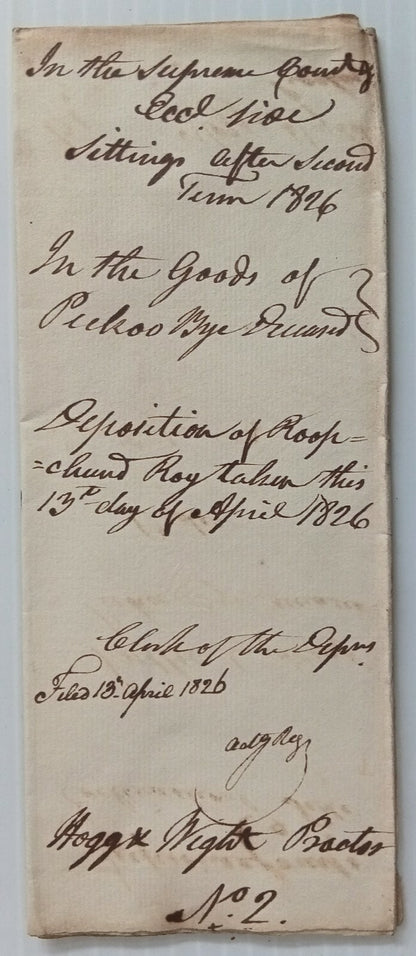 In the Supreme Court
Eccl side
Sittings after Second
Term 1826
In the Goods of
Peekoo Bye Deceased
Deposition of Roop=
=chund Roy taken this
13th day of April 1826
Clerk of the Depns
Filed 13th April 1826
actg Reg
Hogg & Wight Proctor
No. 2.